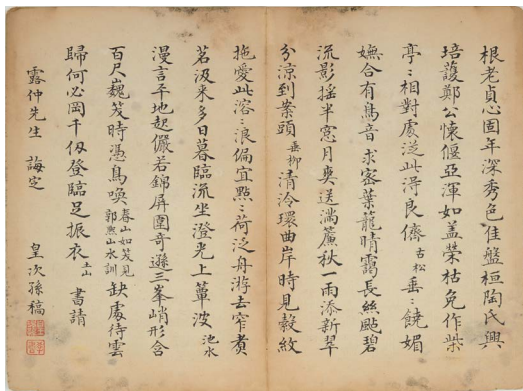 根老貞心固年深秀色佳盤桓陶氏興
培護鄭公懷偃亞渾如蓋榮枯免作柴
亭亭相對處從此得良儕 古松 垂垂饒媚
嫵合有鳥音求密葉籠晴靄長絲颭碧
流影搖半窓月爽送滿簾秋一雨添新翠
分涼到案頭 垂柳 清泠環曲岸時見縠紋
拖愛此溶溶浪偏宜點點荷泛舟游去窄煮
茗汲来多日暮臨流坐澄光上蕈波 池水
漫言平地起儼若錦屏圍奇遜三峯峭形含
百尺巍笈時憑鳥喚 春山如笑見郭熙山水訓 缺處待雲
歸何必岡千仞登臨足振衣 土山 書請
露仲先生 誨定
皇次孫稿